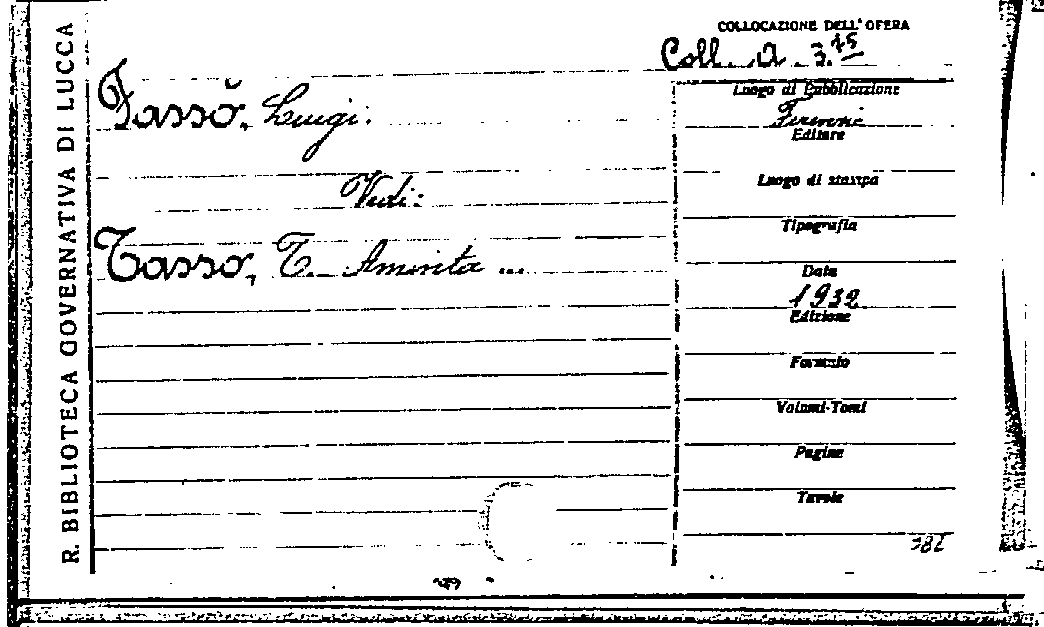 R. BIBLIOTECA GOVERNATIVA DI LUCCA
COLLOCAZIONE DELL'OPERA
Coll. A. 3.75
Fassò, Luigi.
Vedi:
Tasso, T. Aminta ...
Luogo di Pubblicazione
Firenze
Editore
Luogo di stampa
Tipografia
Data
1932
Edizione
Formato
Volumi-Tomi
Pagine
Tavole